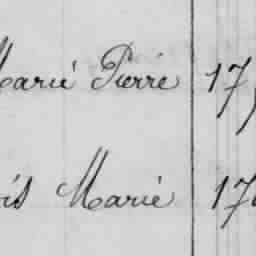 Marie Pierre 17
Marie 17